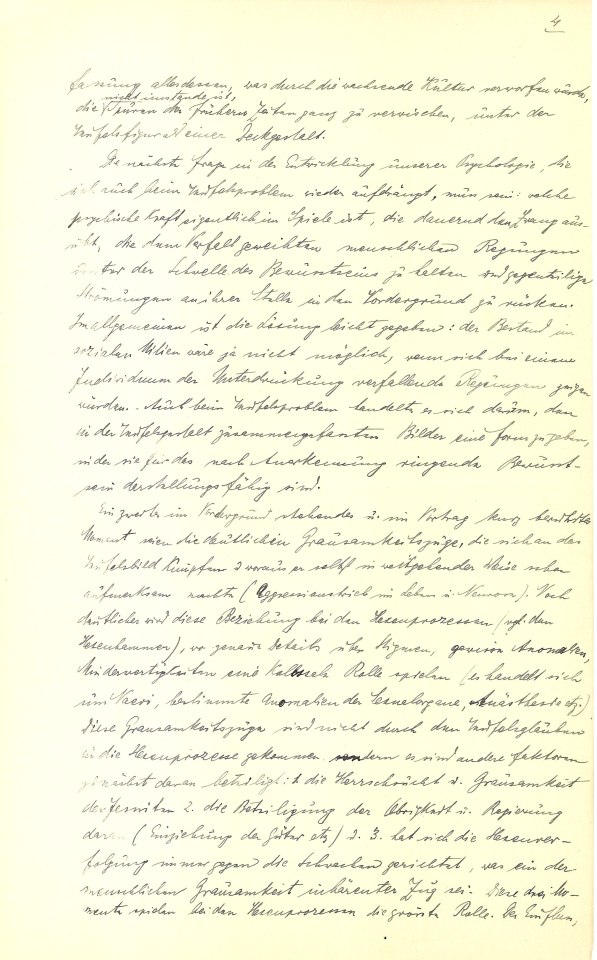 4
fassung alles dessen, was durch die wachsende Kultur verworfen wurde,
nicht imstande ist,
die Spuren der früheren Zeiten ganz zu verwischen, unter der
Teufelsfigur als einer Deckgestalt.
Die nächste Frage in der Entwicklung unserer Psychologie, die
sich auch beim Teufelsproblem wieder aufdrängt, müss sein: welche
psychische Kraft eigentlich im Spiele ist, die dauernd den Zwang aus-
übt, die dem Verfall geweihten menschlichen Regungen
unter der Schwelle des Bewusstseins zu halten und gegenteilige
Strömungen an ihrer Stelle in den Vordergrund zu rücken.
Im allgemeinen ist die Lösung leicht gegeben: der Bestand im
sozialen Milieu wäre ja nicht möglich, wenn sich bei einem
Individuum der Unterdrückung verfallende Regungen zeigen
würden. Auch beim Teufelsproblem handelt es sich darum, den
in der Teufelsgestalt zusammengefassten Bildern eine Form zu geben,
in der sie für das nach Anerkennung ringende Bewusst-
sein darstellungsfähig sind.
Ein zweites im Vordergrund stehendes u. im Vortrag kurz berührtes
Moment seien die deutlichen Grausamkeitszüge, die sich an das
Teufelsbild knüpfen u. worauf er selbst in weitgehender Weise schon
aufmerksam machte (Aggressionstrieb im Leben u. Neurose). Noch
deutlicher wird diese Beziehung bei den Hexenprozessen (vgl. den
Hexenhammer), wo genaue Details über Stigmen, gewisse Anomalien,
Minderwertigkeiten eine kolossale Rolle spielen (es handelt sich
um Naevi, bestimmte Anomalien der Sexualorgane, Anästhesie etz.)
Diese Grausamkeitszüge sind nicht durch den Teufelsglauben
in die Hexenprozesse gekommen, sondern es sind andere Faktoren
zunächst daran beteiligt: 1. die Herrschsucht u. Grausamkeit
der Jesuiten 2. die Beteiligung der Obrigkeit u. Regierung
daran (Einziehung der Güter etz) u. 3. hat sich die Hexenver-
folgung immer gegen die Schwachen gerichtet, was ein der
menschlichen Grausamkeit inhärenter Zug sei. Diese drei Mo-
mente spielen bei den Hexenprozessen die grösste Rolle. Der Einfluss,